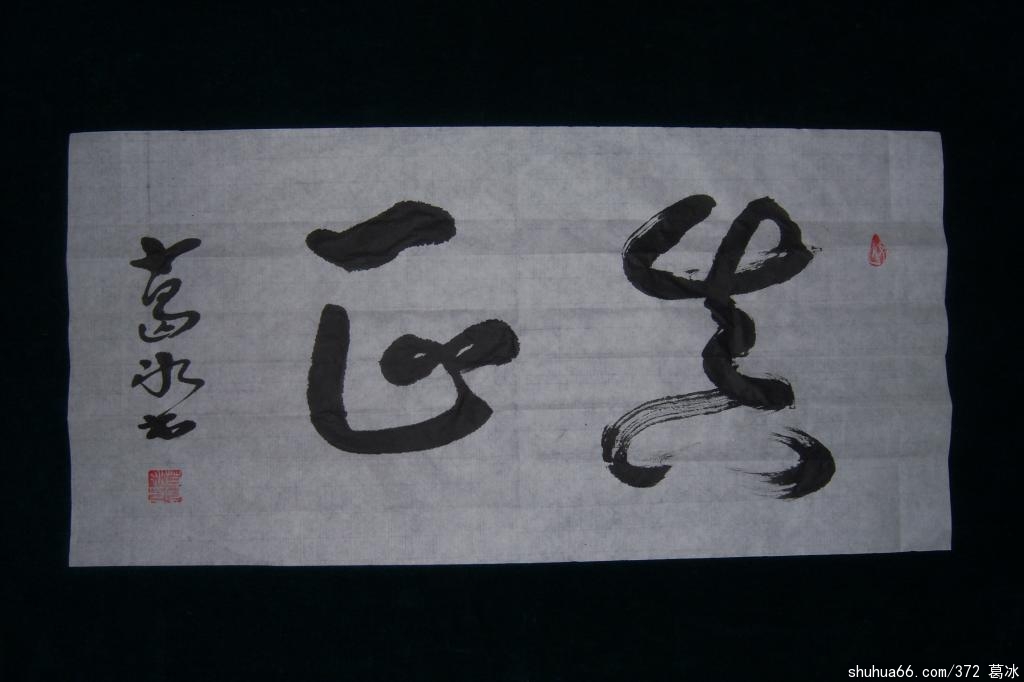 真正
葛冰书
shuhua66.com/372 葛冰